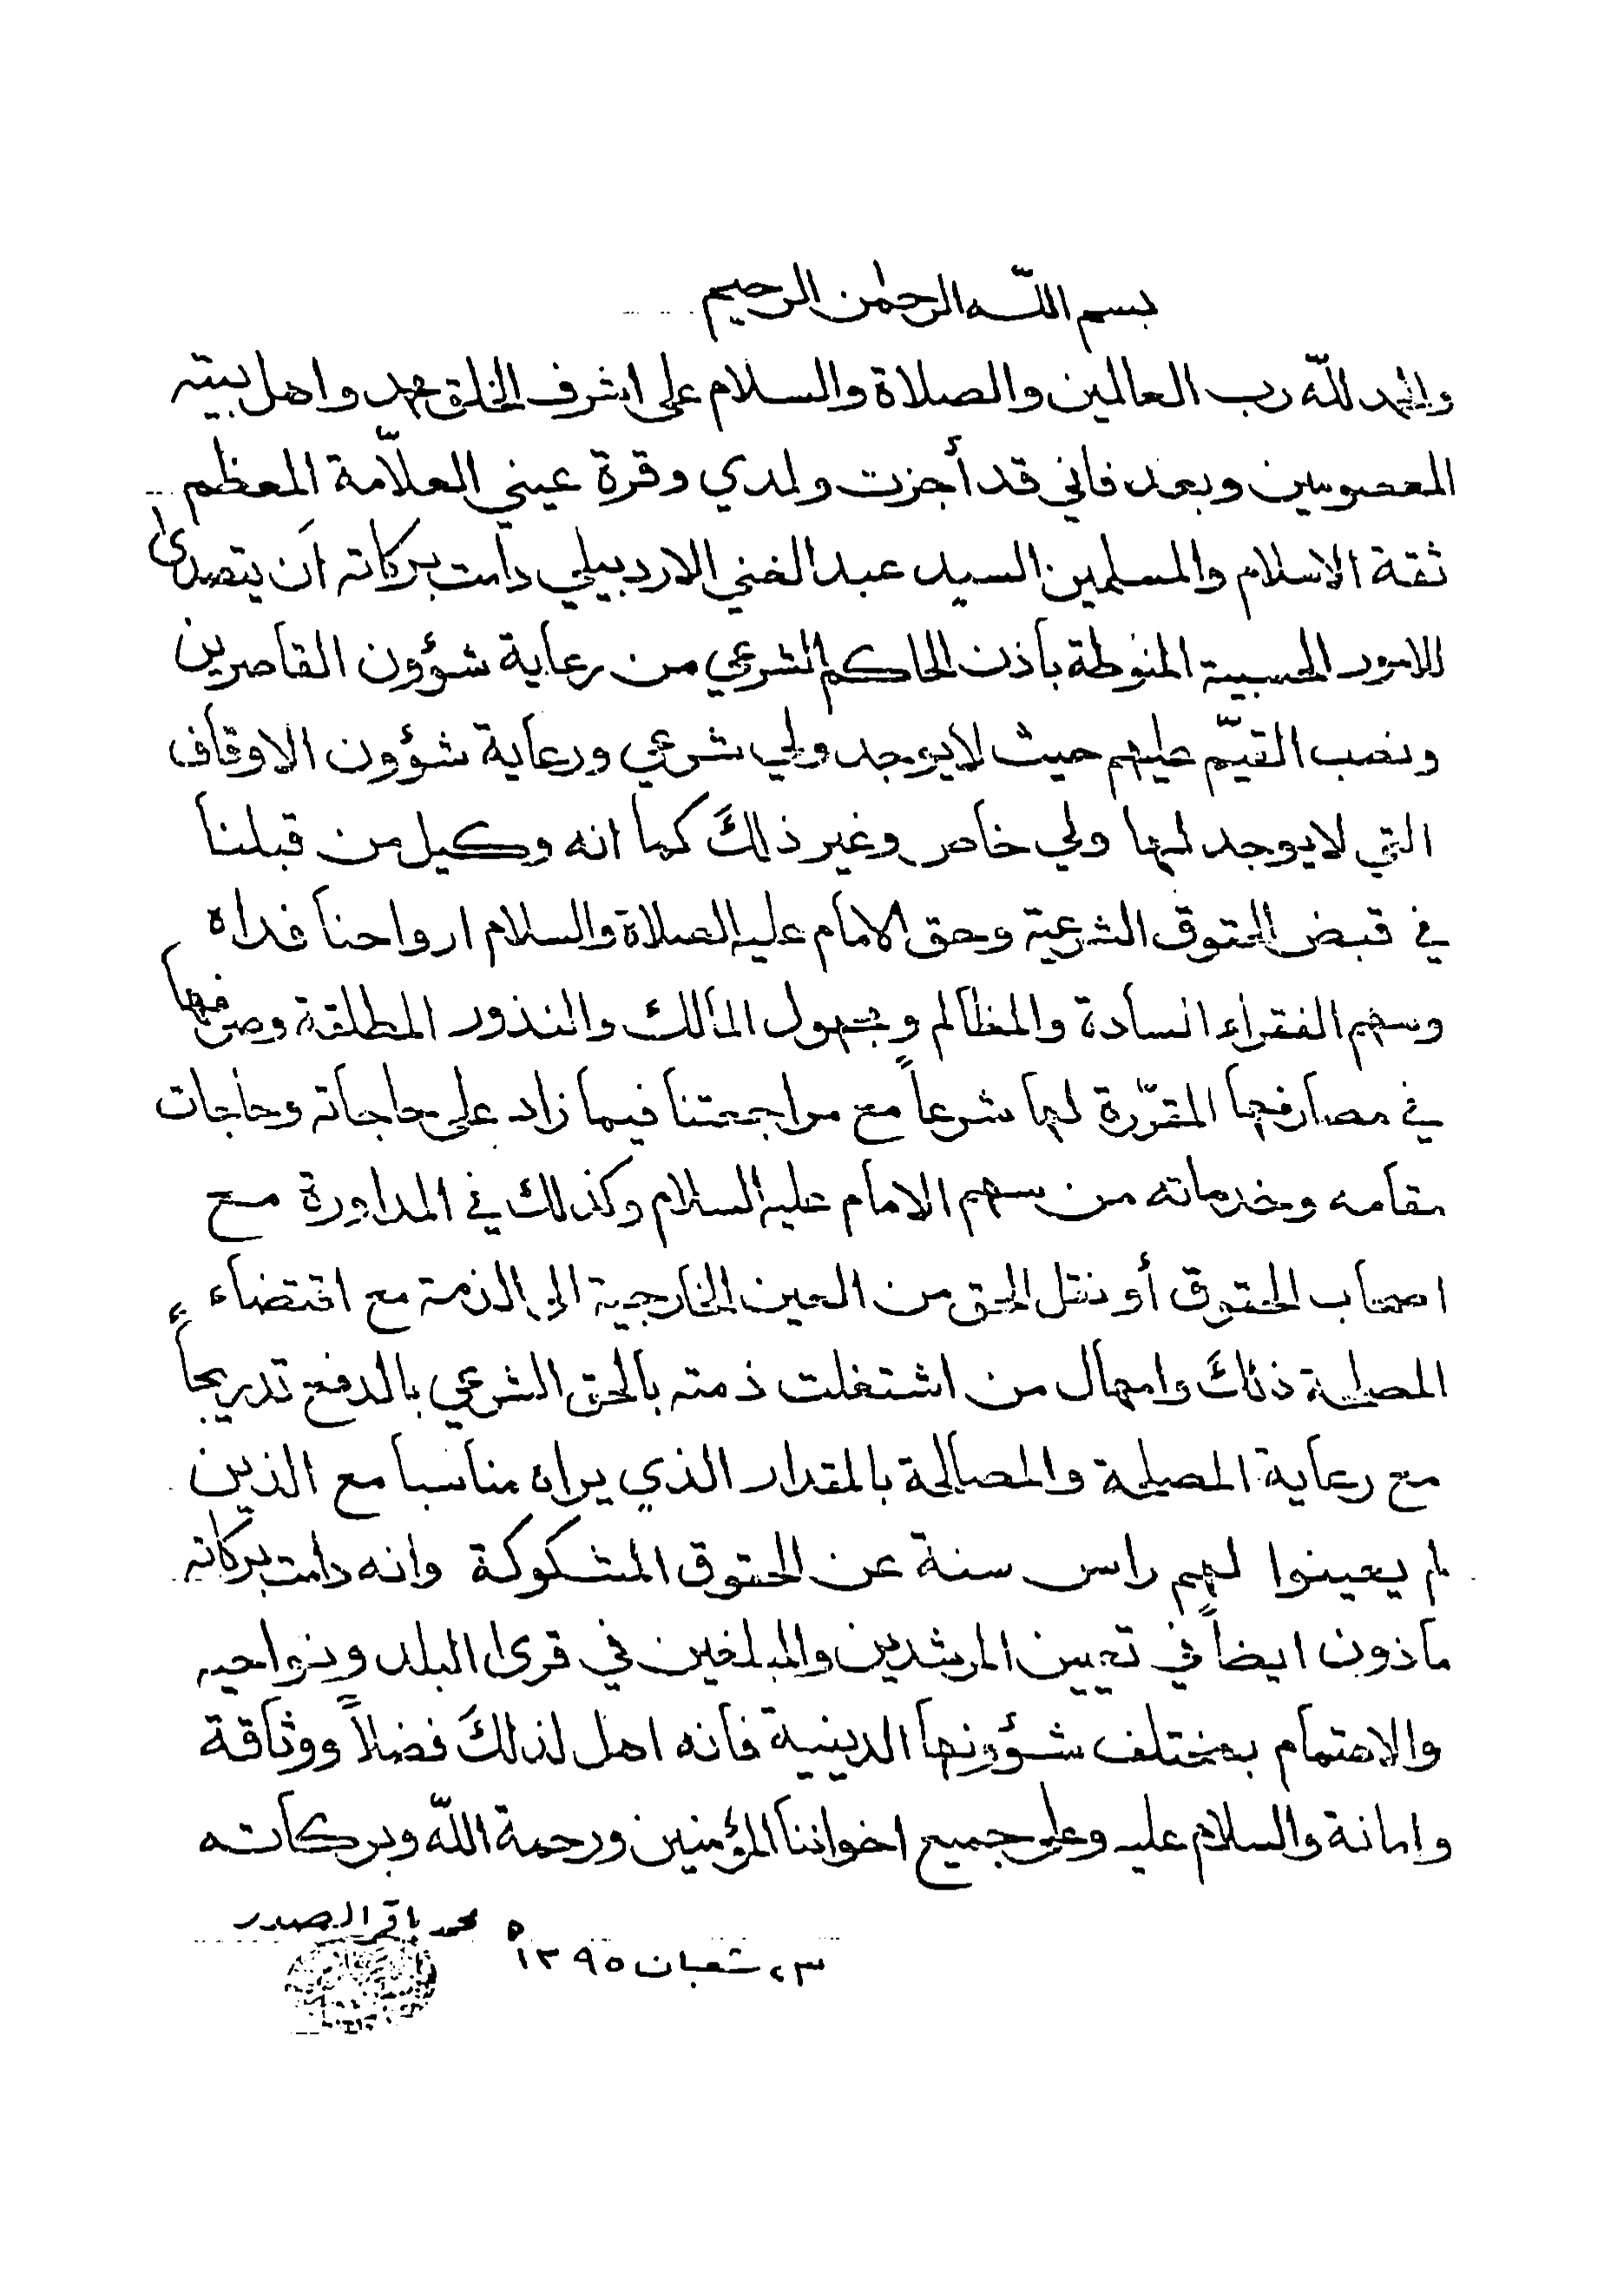 بسم الله الرحمن الرحيم
والحمد لله رب العالمين والصلاة والسلام على اشرف الخلق محمد واهل بيته
المعصومين وبعد فاني قد أجزت ولدي وقرة عيني العلّامة المعظم
ثقة الاسلام والمسلمين السيد عبد الغني الاردبيلي دامت بركاته اَن يتصدى
للامور الحسبية المنوطة باذن الحاكم الشرعي من رعاية شؤون القاصرين
ونصب القيّم عليهم حيث لا يوجد ولي شرعي ورعاية شؤون الاوقاف
التي لا يوجد لها ولي خاص وغير ذلكَ كما انه وكيل من قبلنا
في قبض الحقوق الشرعية وحق الامام عليه الصلاة والسلام ارواحنا فداه
وسهم الفقراء السادة والمظالم ومجهول المالك والنذور المطلقة وصرفها
في مصارفها المقرّرة لها شرعاً مع مراجعتنا فيما زاد على حاجاته وحاجات
مقامه وخدماته من سهم الامام عليه السلام وكذلك في المداورة مع
اصحاب الحقوق أو نقل الحق من العين الخارجية الى الذمة مع اقتضاء
المصلحة ذلكَ وامهال من اشتغلت ذمته بالحق الشرعي بالدفع تدريجاً
مع رعاية المصلحة والمصالحة بالمقدار الذي يراه مناسبا مع الذين
لم يعينوا لهم راس سنة عن الحقوق المشكوكة وانه دامت بركاته
ماذون ايضاً في تعيين المرشدين والمبلغين في قرى البلد ونواحيه
والاهتمام بمختلف شؤونها الدينية فانه اهل لذلكَ فضلاً ووثاقة
وامانة والسلام عليه وعلى جميع اخواننا المؤمنين ورحمة الله وبركاته
محمد باقر الصدر
شعبان ١٣٩٥ه